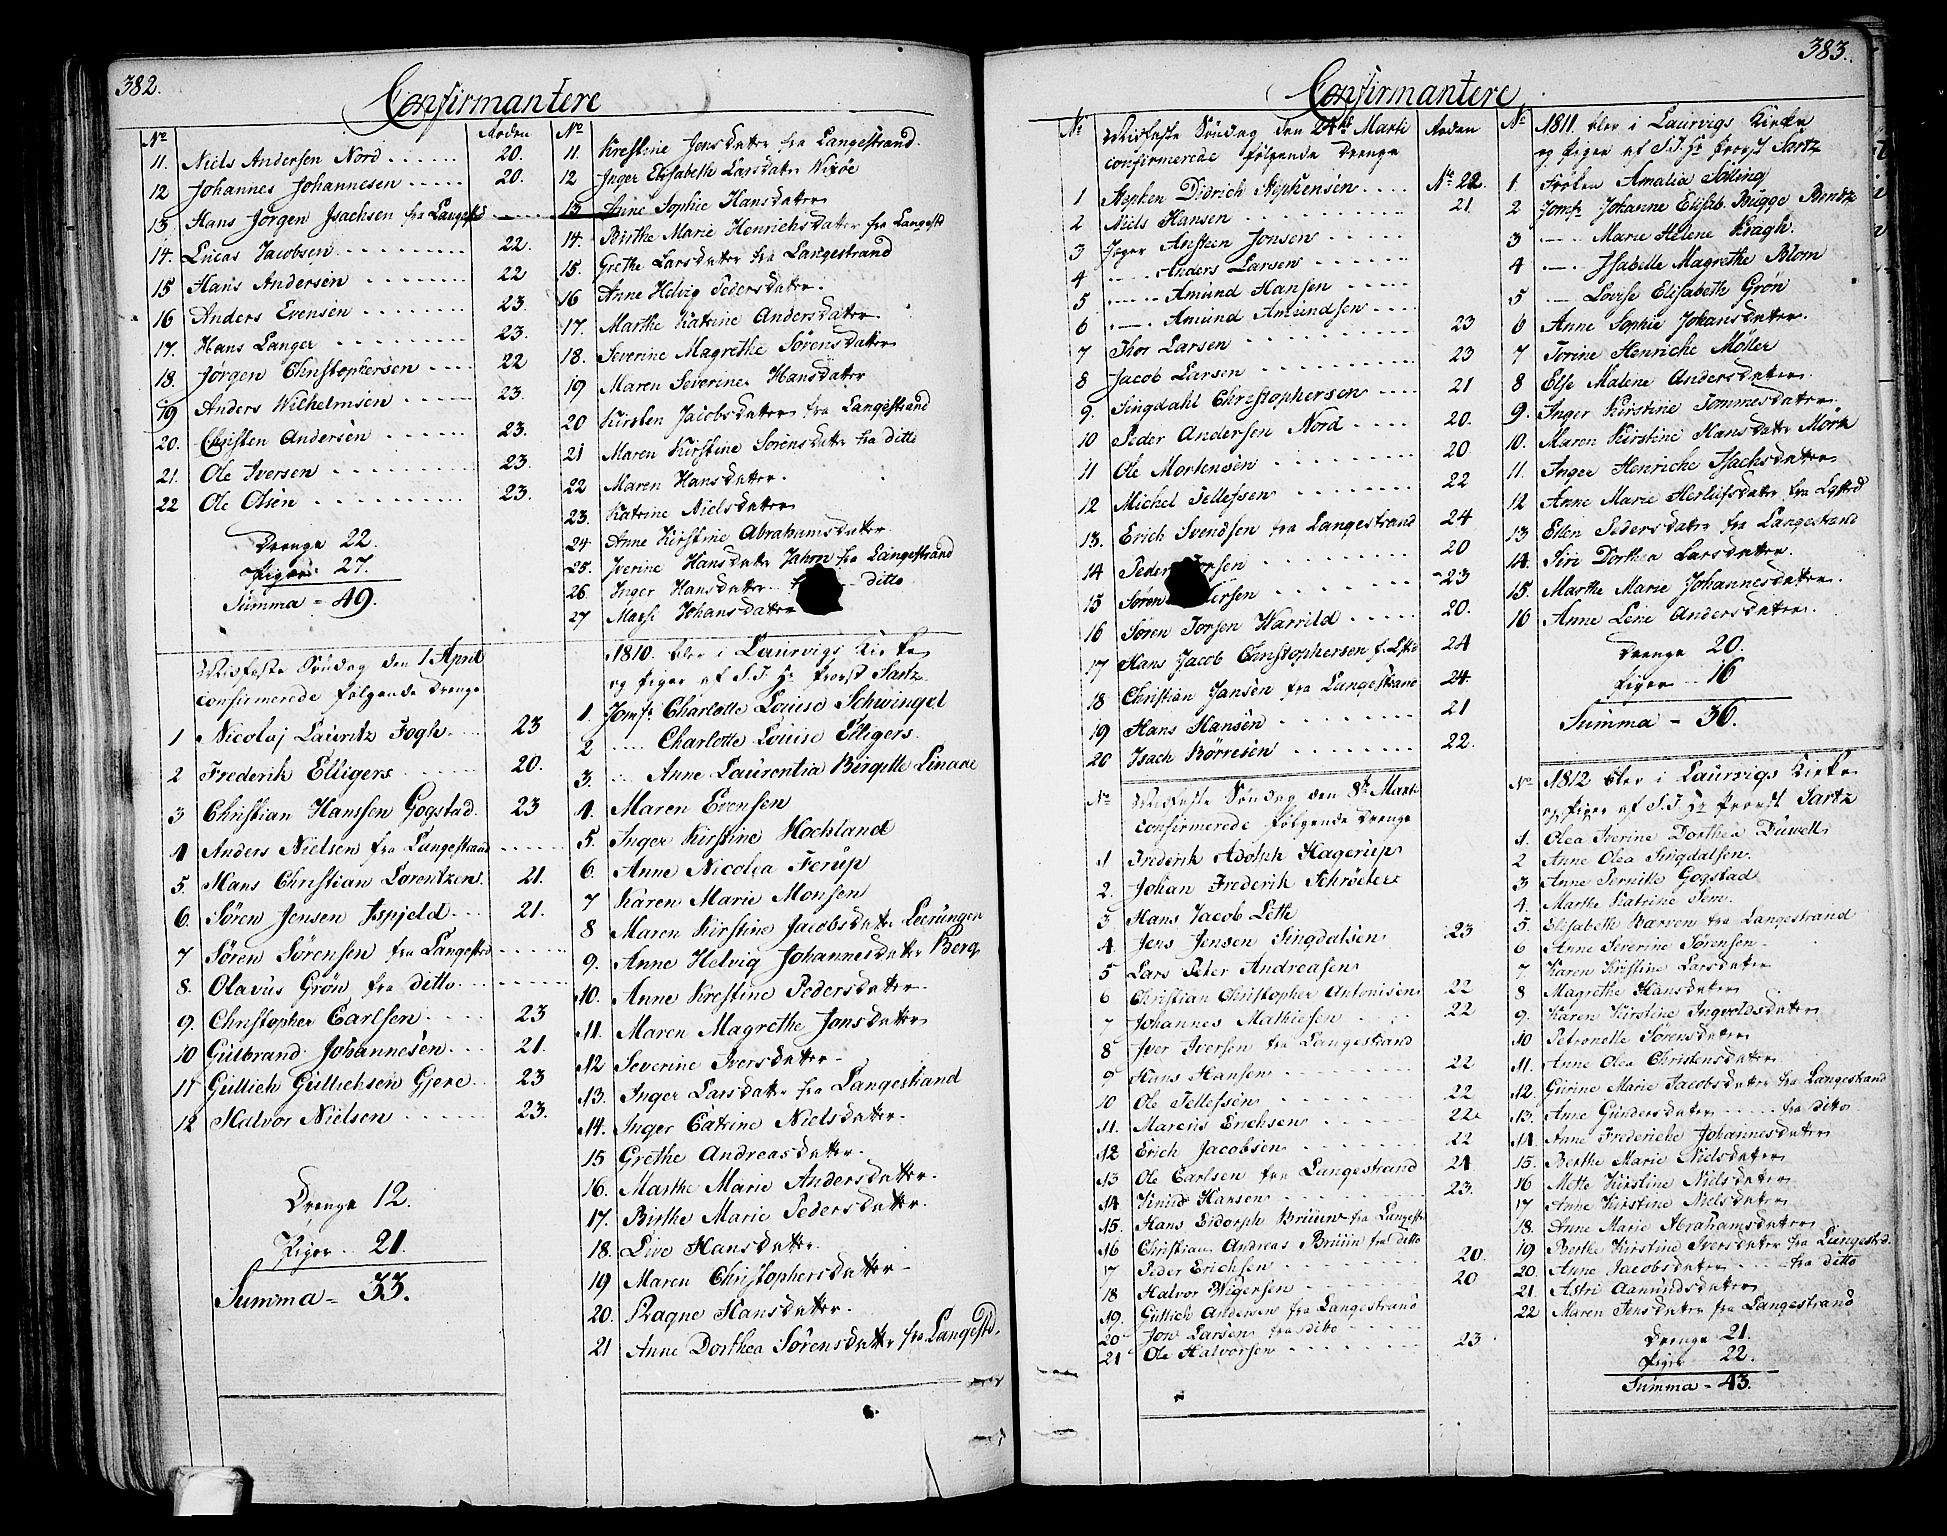 382.
Confirmantere
No
Roden
11. Niels Andersen Nord 20.
12 Johannes Johannesen 20.
13 Hans Jørgen Isachsen fra Langestd
14. Lucas Jacobsen 22.
15 Hans Andersen 22
16 Anders Evensen 23
17. Hans Langer 23.
18. Jørgen Christophersen 22
19 Anders Wilhelmsen 23.
20. Christen Andersen 23.
21. Ole Iversen 23.
22 Ole Olsen 23.
Drenge 22.
Piger 27.
Summa = 49.
No
11. Krestine Jonsdatter fra Langestrand.
12 Inger Elisabeth Larsdatter
13. Anne Sophie Hansdatter
14. Birthe Marie Henrichsdatter fra Langestd
15. Grethe Larsdatter fra Langestrand
16 Anne Helvig Pedersdatter.
17. Marthe Katrine Andersdatter
18. Severine Magrethe Sørensdatter
19 Maren Severine Hansdatter
20 Kirsten Jacobsdatter fra Langestrand
21 Maren Kirstine Sørensdatter fra ditto
22 Maren Hansdatter.
23. Katrine Nielsdatter
24. Anne Kirstine Abrahamsdatter
25. Iverine Hansdatter Jahrn fra Langestrand
26. Inger Hansdatter ditto
27 Johansdatter
Søndag den 1 April
confirmerede følgende Drenge
1 Nicolaj Lauritz Fogh. 23
2 Frederik Elligers 20.
3 Christian Hanssen Gogstad. 23
4 Anders Nielsen fra Langestrand
5. Hans Christian Lorentzen. 21.
6. Søren Jensen Ispjeld 21.
7 Søren Sørensen fra Langestrd
8. Olavus Grøn fra ditto
9. Christopher Carlsen 23
10 Gulbrand Johannesen 21.
11 Gullich Gullichsen Gjere 23
12 Halvor Nielsen 23.
Drenge 12.
Piger 21.
Summa = 33.
1810. blev i Laurvigs Kirke
og Piger af S.T. Hr Provst Sartz
1. Jomfr Charlotte Louise Schwingel
2 Charlotte Louise Elligers.
3. Anne Laurentia Birgitte Linaae
4. Maren Evensen
5. Inger Kirstine Hochland
6. Anne Nicolea Ferup
7 Karen Marie Monsen
8 Maren Kirstine Jacobsdatter Leerungen
9. Anne Helvig Johannesdatter Berg
10. Anne Krestine Pedersdatter
11. Maren Magrethe Jonsdatter
12 Severine Iversdatter
13. Inger Larsdatter fra Langestrand
14. Inger Catrine Nielsdatter.
15 Grethe Andreasdatter.
16. Marthe Marie Andersdatter.
17. Birthe Marie Pedersdatter.
18. Live Hansdatter.
19 Maren Christophersdatter
20. Ragne Hansdatter.
21 Anne Dorthea Sørensdatter fra Langestd.
383.
Confirmantere
No Søndag den 24de Marti Roden
confirmerede følgende Drenge
1 Stephen Didrich Stephensen No 22.
2 Niels Hansen 21
3 Jøger Ansteen Jonsen
4 Anders Larsen
5 Amund Hansen
6 Amund Amundsen
7 Thor Larsen 23
8 Jacob Larsen 23
9. Singdahl Christophersen 21
10 Peder Andersen Nord 20.
11 Ole Mortensen 20
12 Michel Tellefsen 22
13. Erich Svendsen fra Langestrand 24
14 Peder 20
15 Søren 23
16 Søren Torsen Warrild 20.
17 Hans Jacob Christophersen f. Lstd 24
18 Christian Jansen fra Langestrand 24.
19 Hans Hansen 21
20 Isach Børresen 22.
No 1811. blev i Laurvigs Kirke
og Piger af S.T. Hr Provst Sartz
1. Frøken Amalia Sölling
2 Jomfr Johanne Elisab. Bugge Berntz
3 Marie Helene Kragh.
4 Isabelle Magrethe Blom
5 Lovise Elisabeth Grøn
6 Anne Sophie Johansdatter.
7 Torine Henriche Møller
8 Else Malene Andersdatter.
9. Inger Kirstine Tommesdatter
10. Maren Kirstine Hansdatter Mørk
11. Inger Henriche Isachsdatter
12 Anne Marie Herlufsdatter fra Lgstrd
13 Ellen Pedersdatter fra Langestrand
14. Siri Dorthea Larsdatter.
15. Marthe Marie Johannesdatter.
16 Anne Lene Andersdatter.
Drenge 20.
Piger 16
Summa = 36.
No Søndag den 8de Marti
confirmerede følgende Drenge
1 Frederik Adolph Hagerup
2. Johan Frederik Schrøeter
3 Hans Jacob Leth
4 Jens Jensen Singdalsen 23
5 Lars Peter Andreasen
6 Christian Christopher Antonisen 22
7 Johannes Mathiesen 22
8 Iver Iversen fra Langestrand
9 Hans Hansen 22
10 Ole Tellefsen 22
11. Marcus Erichsen 22
12 Erich Jacobsen 22
13 Ole Carlsen fra Langestrand 21
14 Knud Hansen 23.
15. Hans Eidorph Bruun fra Langest
16 Christian Andreas Bruun fra ditto
17 Peder Erichsen 20.
18 Halvor Wigersen 20
19. Gullich Andersen fra Langestrand
20 Jon Larsen fra ditto
21 Ole Halvorsen 23
No 1812 blev i Laurvigs Kirke
og Piger af S.T. Hr Provst Sartz
1. Olea Iverine Dorthea Duwell
2 Anne Olea Singdalsen.
3 Anne Pernille Gogstad
4. Marthe Katrine Sem.
5. Elisabeth Warren fra Langestrand
6 Anne Severine Sørensen
7 Karen Kirstine Larsdatter
8 Magrethe Hansdatter
9. Karen Kirstine Ingvoldsdatter
10 Petronelle Sørensdatter
11. Anne Olea Christensdatter
12. Gurine Marie Jacobsdatter fra Langestrand
13. Anne Gundersdatter fra ditto
14. Anne Frederiche Johannesdatter
15. Berthe Marie Nielsdatter
16 Mette Kirstine Nielsdatter
17 Anne Kirstine Nielsdatter
18. Anne Marie Abrahamsdatter
19 Berthe Kirstine Iversdatter fra Langestrd.
20. Anne Jacobsdatter fra ditto
21. Astri Aamundsdatter
22. Maren Jensdatter fra Langestrand
Drenge 21.
Piger 22.
Summa = 43.